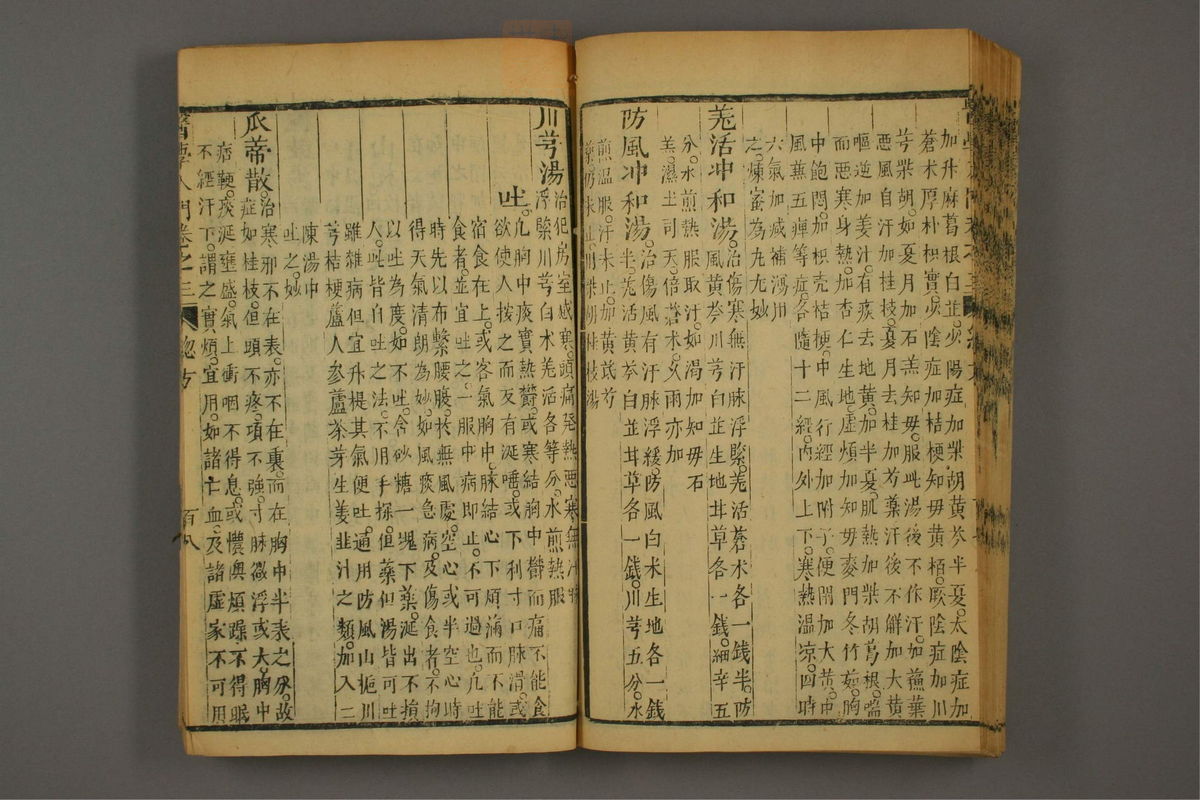 加升麻葛根白芷少陽症加柴胡黃芩半夏太陰症加
蒼朮厚朴枳實少陰症加桔梗知母黃栢厥陰症加川
芎柴胡如夏月加石羔知母服此湯後不作汗加蘇葉
惡風自汗加桂枝夏月去桂加芍藥汗後不觧加大黃
嘔逆加姜汁有痰去地黃加半夏肌熱加柴胡葛根喘
而惡寒身熱加杏仁生地虛煩加知母麥門冬竹茹胸
中飽悶加枳壳桔梗中風行經加附子便閉加大黃中
風蕪五痺等症各隨十二經內外上下寒熱溫凉四時
六氣加減補瀉川
之煉蜜為丸尤妙
羗活冲和湯治傷寒無汗脉浮緊羗活蒼朮各一錢半防
風黃芩川芎白芷生地甘草各一錢細辛五
分水煎熱服取汗如渴加知母石
羔濕土司天倍蒼朮久雨亦加
防風冲和湯治傷風有汗脉浮緩防風白朮生地各一錢
半羗活黃芩白芷甘草各一錢川芎五分水
煎溫服汗未止加黃芪芍
藥仍未止用柴胡桂枝湯
川芎湯治犯房室感寒頭痛發熱惡寒無汗脉
浮緊川芎白朮羗活各等分水煎熱服
吐
凡胸中痰實熱欝或寒結胸中欝而痛不能食
欲使人按之而反有涎唾或下利寸口脉滑或
宿食在上或客氣胸中脉結心下煩滿而不能
食者並宜吐之一服中病即止不可過也凡吐
時先以布繫腰腹於無風處空心或半空心時
得天氣清朗為妙如風痰急病及傷食者不拘
以吐為度如不吐含砂糖一塊下藥涎出不損
人此皆自吐之法不用手探但藥但湯皆可吐
雖雜病但宜升提其氣便吐通用防風山梔川
芎桔梗蘆人參蘆茶芽生姜韭汁之類加入二
陳湯中
吐之妙
瓜蒂散治寒邪不在表亦不在裏而在胸中半表之分故
症如桂枝但頭不疼項不強寸脉微浮或大胸中
痞鞕痰涎壅盛氣上衝咽不得息或懊憹煩躁不得眠
不經汗下謂之實煩宜用如諸亡血及諸虛家不可用
醫學入門卷之三
總方
百八